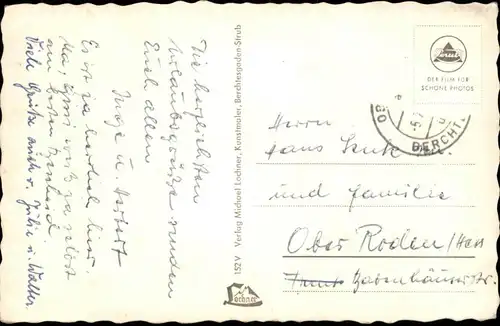 Die herzlichsten
Urlaubsgrüße senden
Euch allen
Inge u. Herbert
Es ist ja herrlich hier.
Na, Ihr wißt ja selbst
am besten Bescheid.
Viele Grüße auch v. Julie u. Walter.
152 V Verlag Michael Lochner, Kunstmaler, Berchtesgaden-Strub
Lochner
DER FILM FÜR
SCHÖNE PHOTOS
BERCHT.
Herrn
Hans
und Familie
Ober Roden/Hess
Babenhäuserstr.